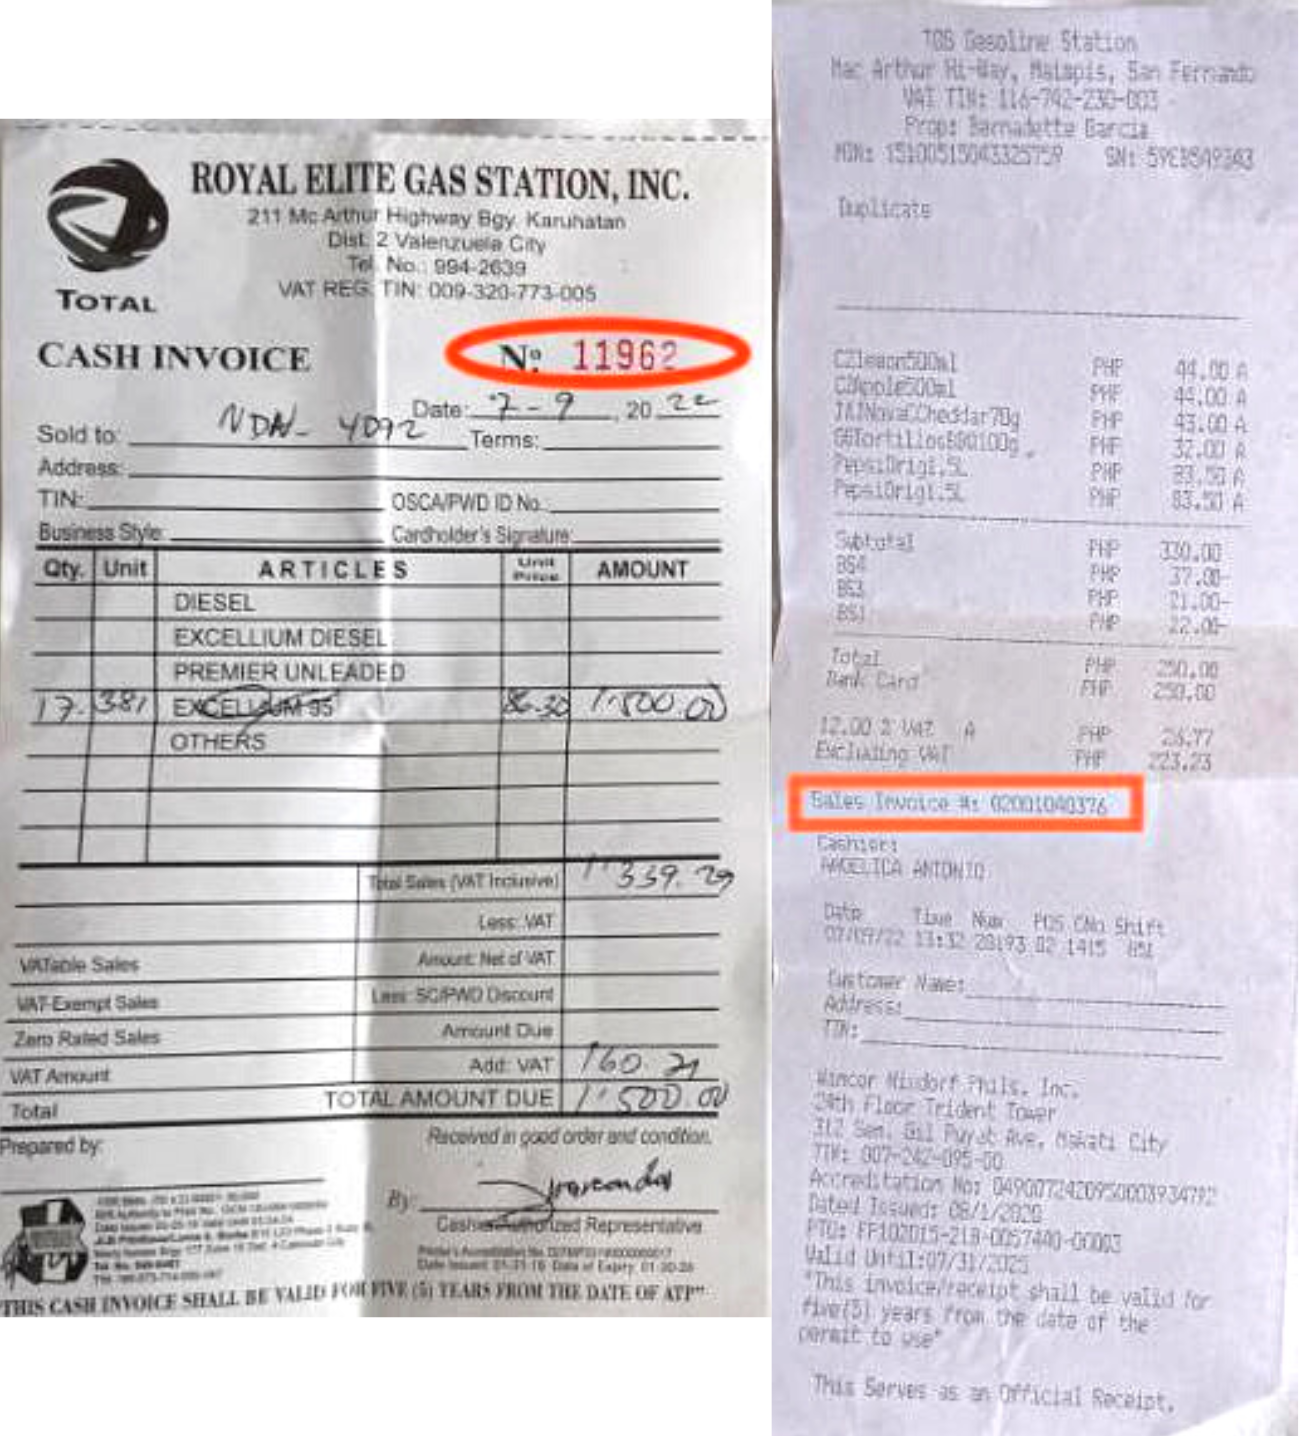 ROYAL ELITE GAS STATION, INC.
211 Mc Arthur Highway Bgy. Karuhatan
Dist. 2 Valenzuela City
Tel. No.: 994-2639
VAT REG. TIN: 009-320-773-005
TOTAL
CASH INVOICE
Nº 11962
Date: 7-9, 20 22
Sold to: NDN- 4092 Terms:
Address:
TIN: OSCA/PWD ID No.
Business Style: Cardholder's Signature:
Qty. Unit ARTICLES Unit Price AMOUNT
DIESEL
EXCELLIUM DIESEL
PREMIER UNLEADED
17. 381 EXCELLIUM 95 86.30 1,500.00
OTHERS
Total Sales (VAT Inclusive) 1,339.29
Less: VAT
VATable Sales Amount: Net of VAT
VAT-Exempt Sales Less: SC/PWD Discount
Zero Rated Sales Amount Due
VAT Amount Add: VAT 160.71
Total TOTAL AMOUNT DUE 1,500.00
Prepared by: Received in good order and condition.
By:
Cashier/Authorized Representative
"THIS CASH INVOICE SHALL BE VALID FOR FIVE (5) YEARS FROM THE DATE OF ATP"
TGS Gasoline Station
Mac Arthur Hi-Way, Malapis, San Fernando
VAT TIN: 116-742-230-003
Prop: Bernadette Garcia
MIN: 15100515043325759 SN: 59EB5A9343
Duplicate
C2lemon500ml PHP 44.00 A
C2Apple500ml PHP 44.00 A
JAJNovaCCheddar78g PHP 43.00 A
GGTortillosBBQ100g PHP 32.00 A
PepsiOrig1.5L PHP 83.50 A
PepsiOrig1.5L PHP 83.50 A
Subtotal PHP 330.00
BS4 PHP 37.00-
BS3 PHP 21.00-
BS1 PHP 22.00-
Total PHP 250.00
Bank Card PHP 250.00
12.00 % VAT A PHP 26.77
Excluding VAT PHP 223.23
Sales Invoice #: 02001040376
Cashier:
ANGELICA ANTONIO
Date Time Num POS CNo Shift
07/09/22 13:32 28193 02 1415
Customer Name:
Address:
TIN:
Wincor Nixdorf Phils. Inc.
24th Floor Trident Tower
312 Sen. Gil Puyat Ave, Makati City
TIN: 007-242-095-00
Accreditation No: 0490072420950003934792
Dated Issued: 08/1/2020
PTU: FP102015-21B-0057440-00003
Valid Until:07/31/2025
"This invoice/receipt shall be valid for
five(5) years from the date of the
permit to use"
This Serves as an Official Receipt.